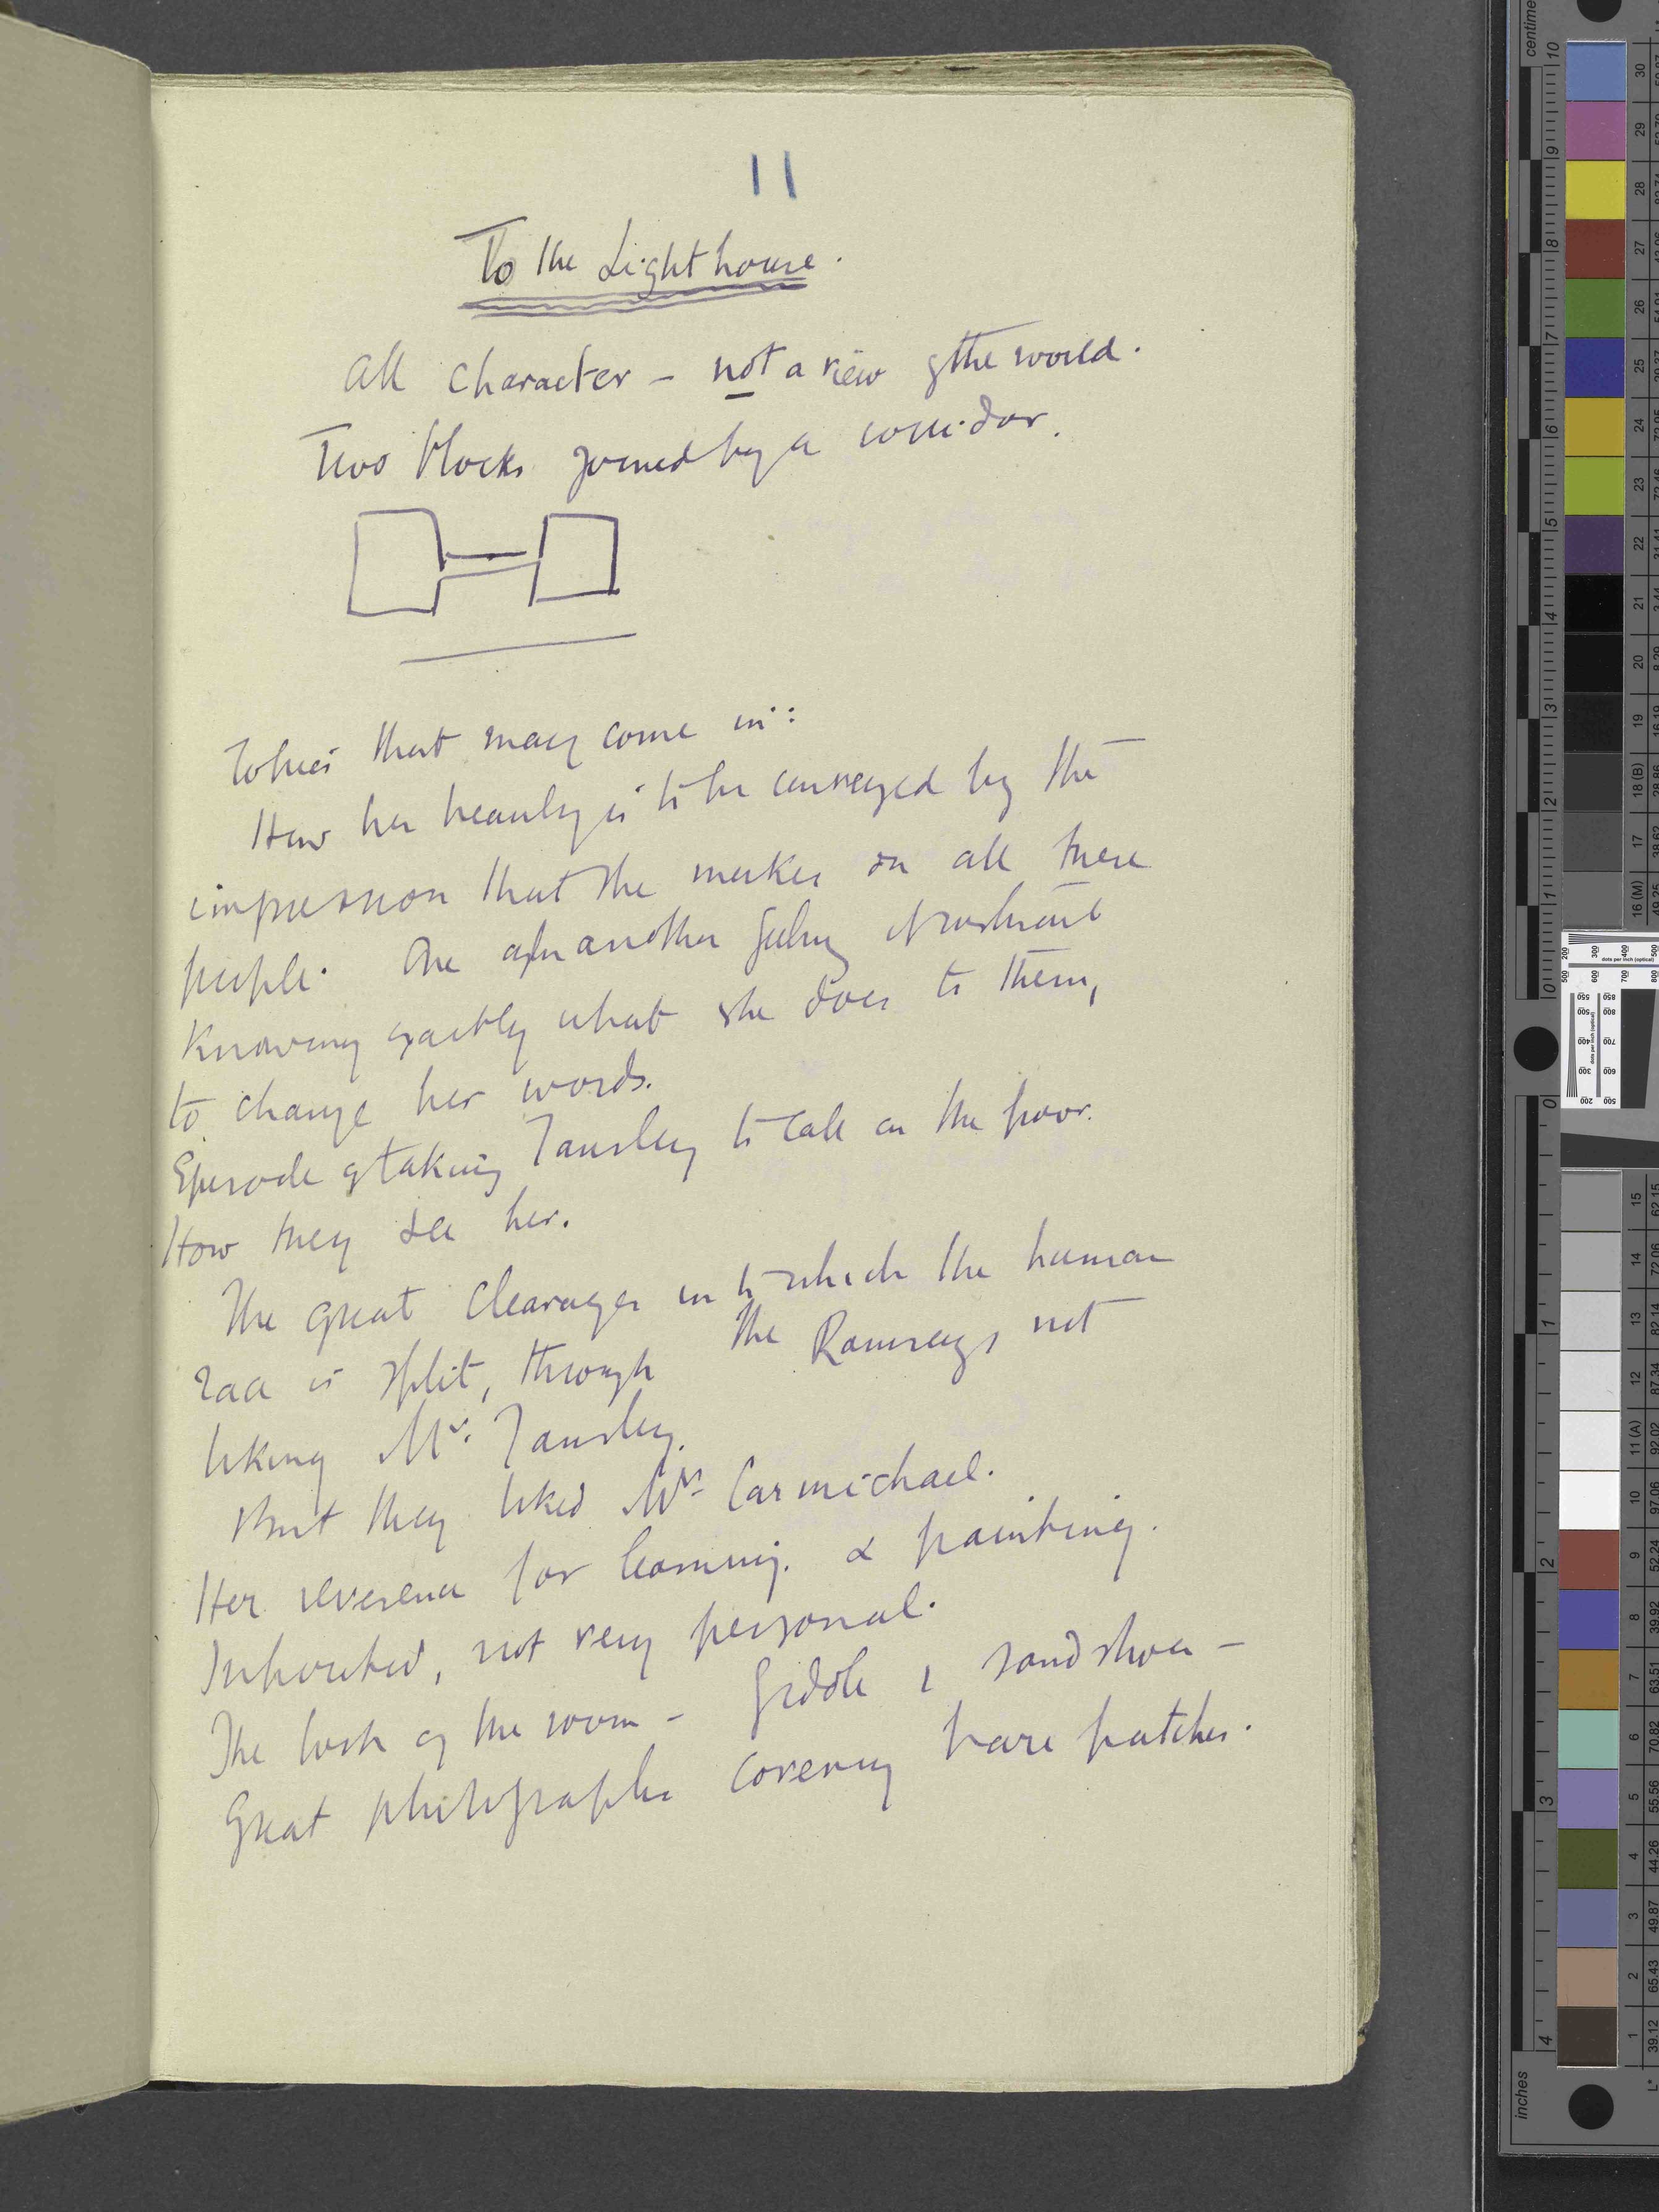 11
To the Lighthouse.
All character - not a view of the world.
Two blocks joined by a corridor.
Topics that may come in:
How her beauty is to be conveyed by the
impression that she makes on all these
people. One after another feeling it without
knowing exactly what she does to them,
to change her words.
Episode of taking Tansley to call on the poor.
How they see her.
The great cleavages into which the human
race is split, through the Ramsays not
liking Mr. Tansley.
But they liked Mr Carmichael.
Her reverence for learning & painting.
Inhibited, not very personal.
The look of the room - fiddle & sand shoes -
Great photographs covering bare patches.